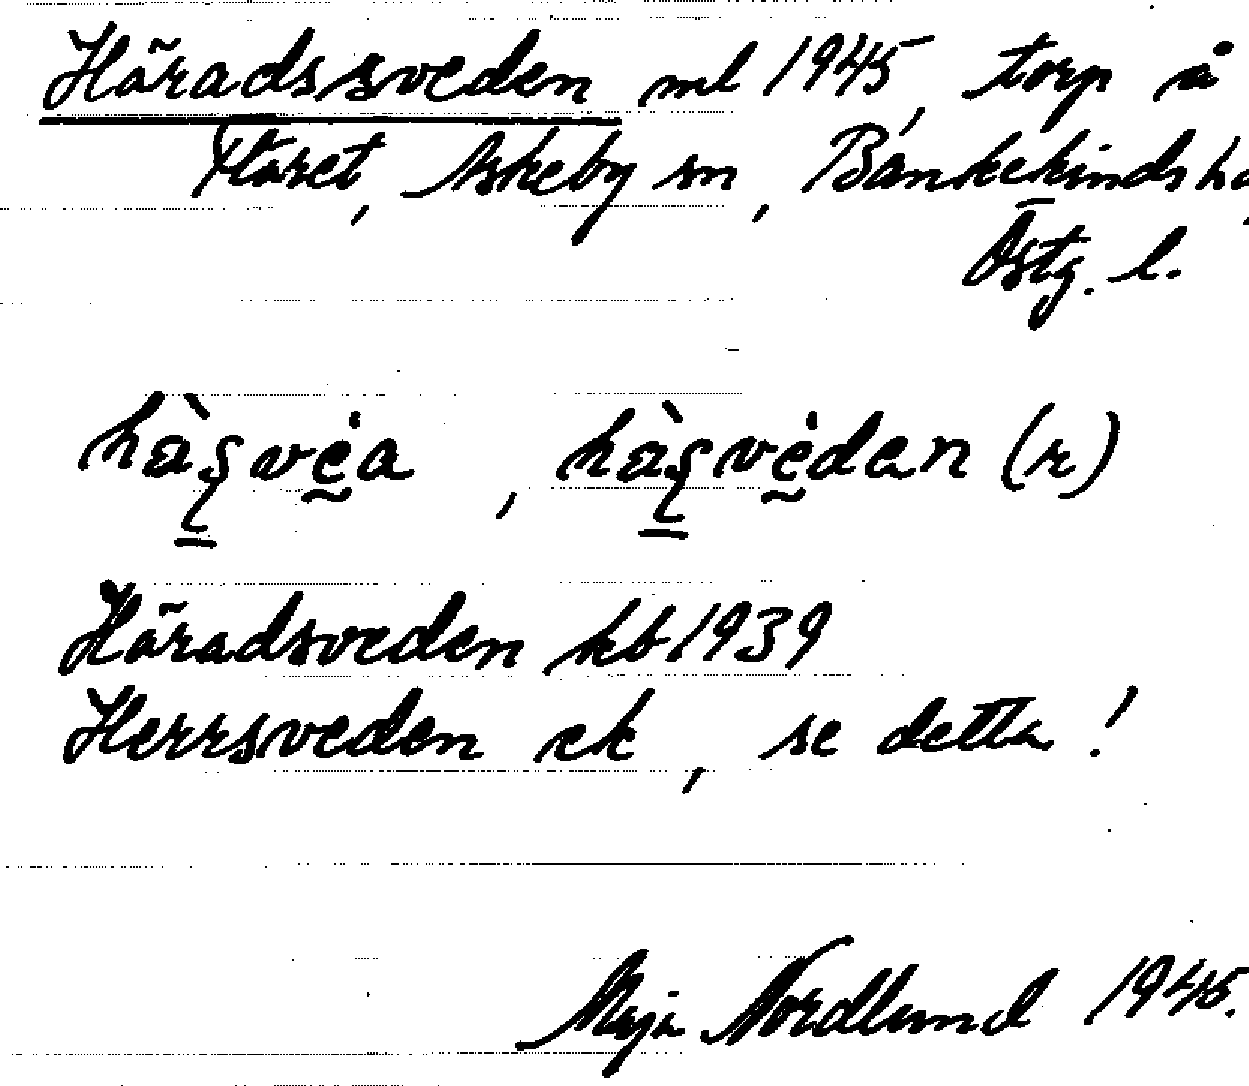 Häradssveden ml 1945, torp å
Ytaset, Askeby sn, Bankekinds hd
Östg. l.
hàșvéa, hàșvédan (r)
Häradsveden kb 1939
Herrsveden ek, se detta!
Maja Nordlund 1945.